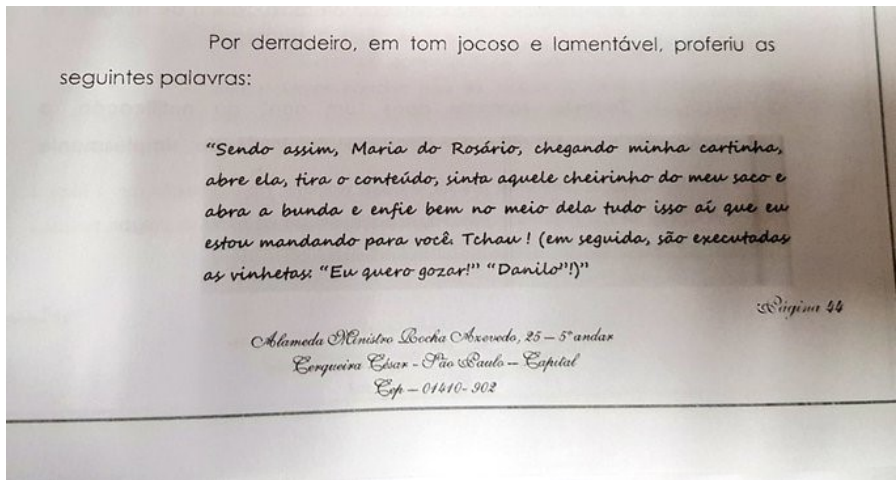 Por derradeiro, em tom jocoso e lamentável, proferiu as
seguintes palavras:
“Sendo assim, Maria do Rosário, chegando minha cartinha,
abre ela, tira o conteúdo, sinta aquele cheirinho do meu saco e
abra a bunda e enfie bem no meio dela tudo isso aí que eu
estou mandando para você. Tchau! (em seguida, são executadas
as vinhetas: “Eu quero gozar!” “Danilo”!)”
Página 44
Alameda Ministro Rocha Azevedo, 25 – 5º andar
Cerqueira César - São Paulo – Capital
Cep – 01410-902